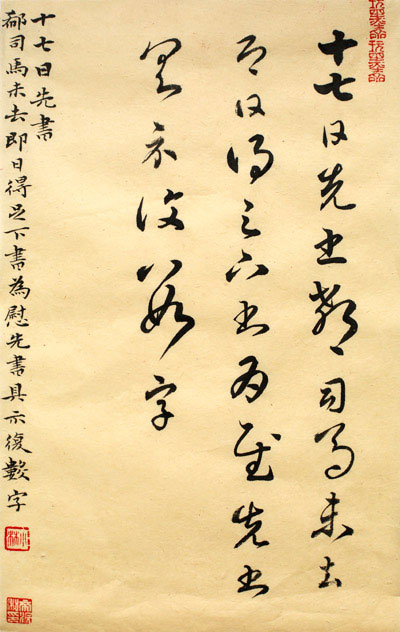 十七日先書郗司馬未去
即日得足下書為慰先書
具示復數字
十七日先書
郗司馬未去即日得足下書為慰先書具示復數字